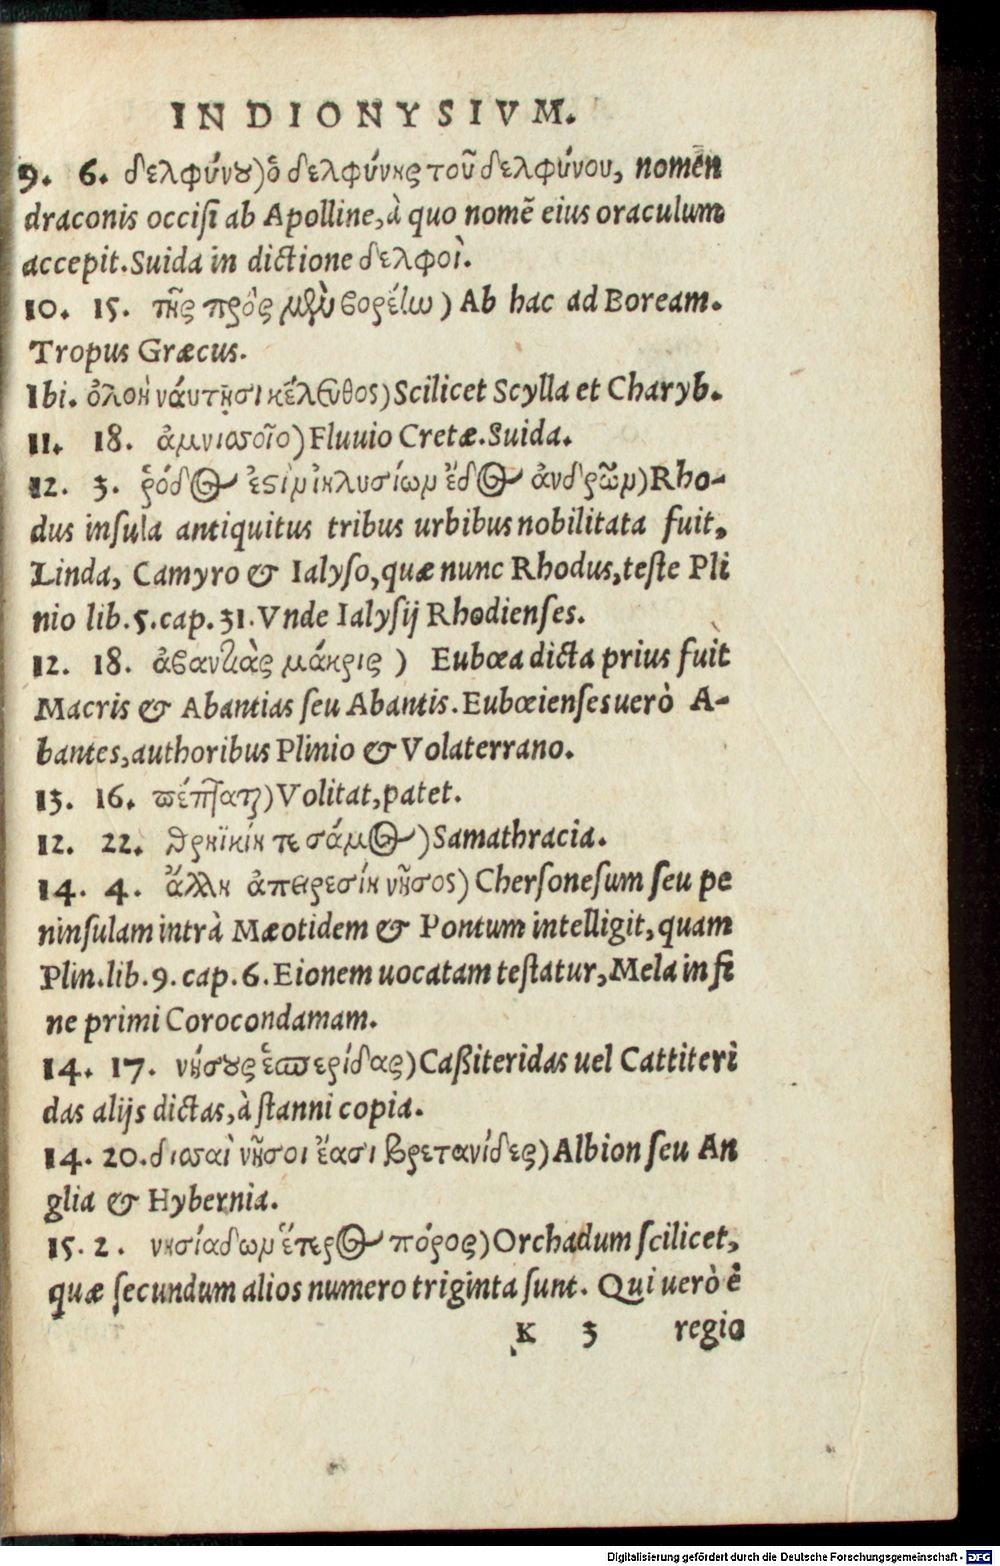 IN DIONYSIVM.
9. 6. δελφύνου) ὁ δελφύνης τοῦ δελφύνου, nomen
draconis occiſi ab Apolline, à quo nomē eius oraculum
accepit. Suida in dictione δελφοὶ.
10. 15. τῆς πρὸς μὲν βορέην) Ab hac ad Boream.
Tropus Græcus.
Ibi. ὀλοὴ ναύτῃσι κέλευθος) Scilicet Scylla et Charyb.
11. 18. ἀμνισοῖο) Fluuio Cretæ. Suida.
12. 3. ῥόδος ἐστὶν ἰηλυσίων ἕδος ἀνδρῶν) Rho-
dus inſula antiquitus tribus urbibus nobilitata fuit,
Linda, Camyro & Ialyſo, quæ nunc Rhodus, teſte Pli
nio lib. 5. cap. 31. Vnde Ialyſij Rhodienſes.
12. 18. ἀβαντιὰς μάκρις ) Eubœa dicta prius fuit
Macris & Abantias ſeu Abantis. Eubœienſes uerò A-
bantes, authoribus Plinio & Volaterrano.
13. 16. πέπταται) Volitat, patet.
12. 22. θρηϊκίη τε σάμος) Samathracia.
14. 4. ἄλλη ἀπειρεσίη νῆσος) Cherſoneſum ſeu pe
ninſulam intrà Mæotidem & Pontum intelligit, quam
Plin. lib. 9. cap. 6. Eionem uocatam teſtatur, Mela in fi
ne primi Corocondamam.
14. 17. νήσους ἑσπερίδας) Caßiteridas uel Cattiteri
das alijs dictas, à ſtanni copia.
14. 20. δισσαὶ νῆσοι ἔασι βρετανίδες) Albion ſeu An
glia & Hybernia.
15. 2. νησίαδων ἕτερος πόρος) Orchadum ſcilicet,
quæ ſecundum alios numero triginta ſunt. Qui uerò ē
K 3 regio
Digitalisierung gefördert durch die Deutsche Forschungsgemeinschaft - DFG